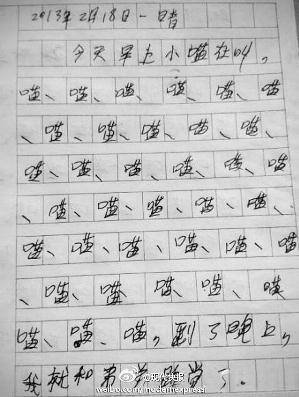 2013年2月18日一晴
今天早上小喵在叫。
喵、喵、喵、喵、喵、喵
、喵、喵、喵、喵、喵、
喵、喵、喵、喵、喵、喵
、喵、喵、喵、喵、喵、
喵、喵、喵、喵、喵、喵
、喵、喵、喵、喵、喵
喵、喵、喵,到了晚上,
我就和 了.
@现代快报
weibo.com/modernexpress